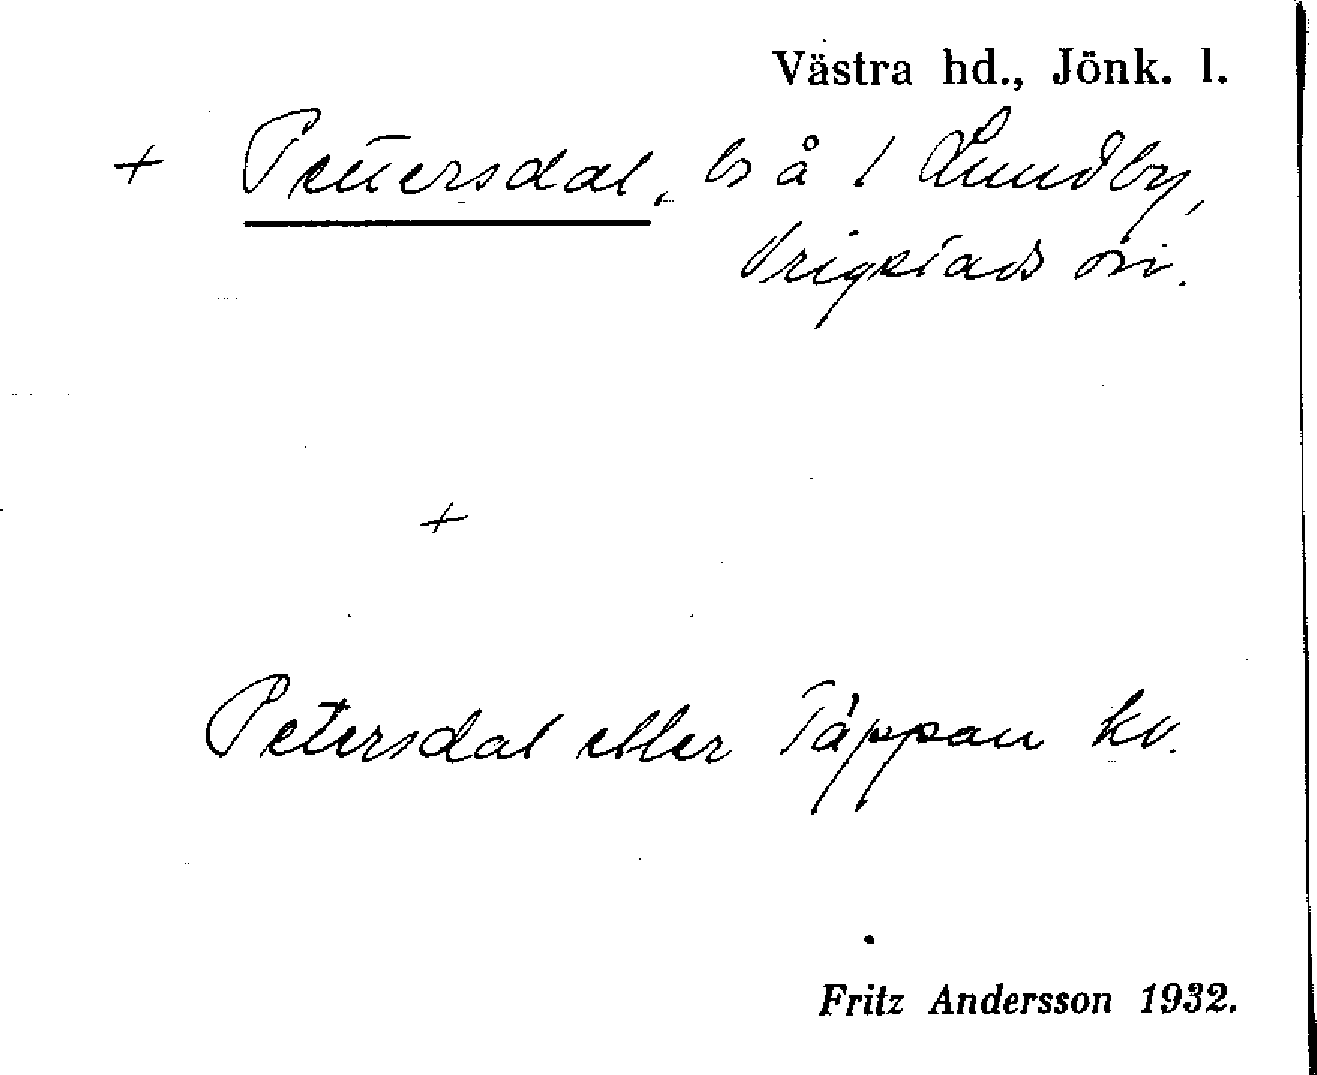 Västra hd., Jönk. l.
+ Pettersdal, bs å 1 Lundby,
Vrigstads sn.
+
Petersdal eller Täppan kv.
Fritz Andersson 1932.